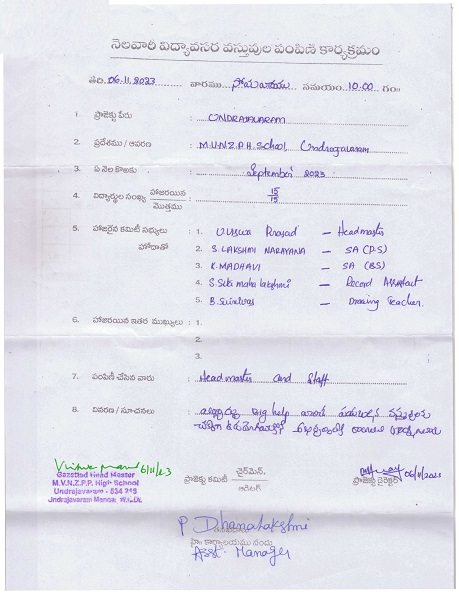 నెలవారీ విద్యావసర వస్తువుల పంపిణీ కార్యక్రమం
తేది. 06.11.2023 వారము సోమవారము సమయం. 10:00 గం॥
1. ప్రాజెక్టు పేరు : UNDRAJAVARAM
2. ప్రదేశము / ఆవరణ : M.V.N.Z.P.H. School, Undrajavaram
3. ఏ నెల కొఱకు : September 2023
4. విద్యార్థుల సంఖ్య హాజరయిన మొత్తము : 15/15
5. హాజరైన కమిటీ సభ్యులు హోదాతో : 1. Viswa Prasad – Headmaster
2. S. LAKSHMI NARAYANA – SA (P.S)
3. K. MADHAVI – SA (BS)
4. S. Seta maha lakshmi – Record Assistant
5. B. Srinivas – Drawing Teacher.
6. హాజరయిన ఇతర ముఖ్యులు : 1.
2.
3.
7. పంపిణీ చేసిన వారు : Headmaster and Staff
8. వివరణ / సూచనలు : Big help
6/11/23
Gazetted Head Master
M.V.N.Z.P.P. High School
Undrajavaram - 534 216
Undrajavaram Mandal, W.G.Dt.
ప్రాజెక్టు కమిటీ ఛైర్‌మెన్. ఆడిటర్
06/11/2023
ప్రాజెక్టు డైరెక్టర్
P. Dhanalakshmi
Asst. Manager